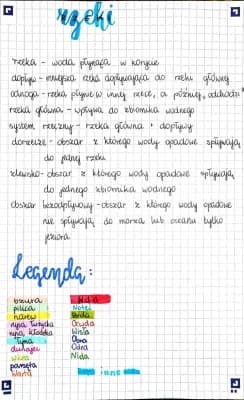 rzeki
rzeka - woda płynąca w korycie
dopływ - mniejsza rzeka dopływająca do rzeki głównej
odnoga - rzeka płynie w innej rzece, a później „odchodzi"
rzeka główna - wpływa do zbiornika wodnego
system rzeczny - rzeka główna + dopływy
dorzecze - obszar z którego wody opadowe spływają
do jednej rzeki
zlewisko - obszar z którego wody opadowe spływają
do jednego zbiornika wodnego
obszar bezodpływowy - obszar z którego wody opadowe
nie spływają do morza lub oceanu tylko
jeziora
Legenda:
bzura
pilica
narew
nysa łużycka
nysa kłodzka
Tyna
dunajec
wkra
parsęta
warta
Noteć
Brda
Wisła
Odra
Nida
inne